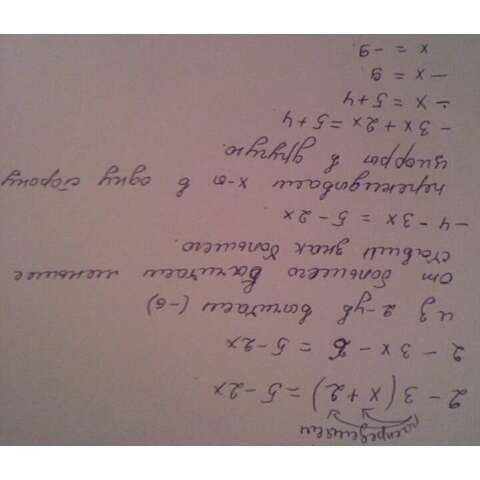 распределяем
2 - 3(x + 2) = 5 - 2x
2 - 3x - 6 = 5 - 2x
из 2-ух вычитаем (-6)
от большего вычитаем меньшее
ставим знак большего.
-4 - 3x = 5 - 2x
перекидоваем x-ы в одну сторону
цифры в другую.
- 3x + 2x = 5 + 4
- x = 5 + 4
- x = 9
x = -9